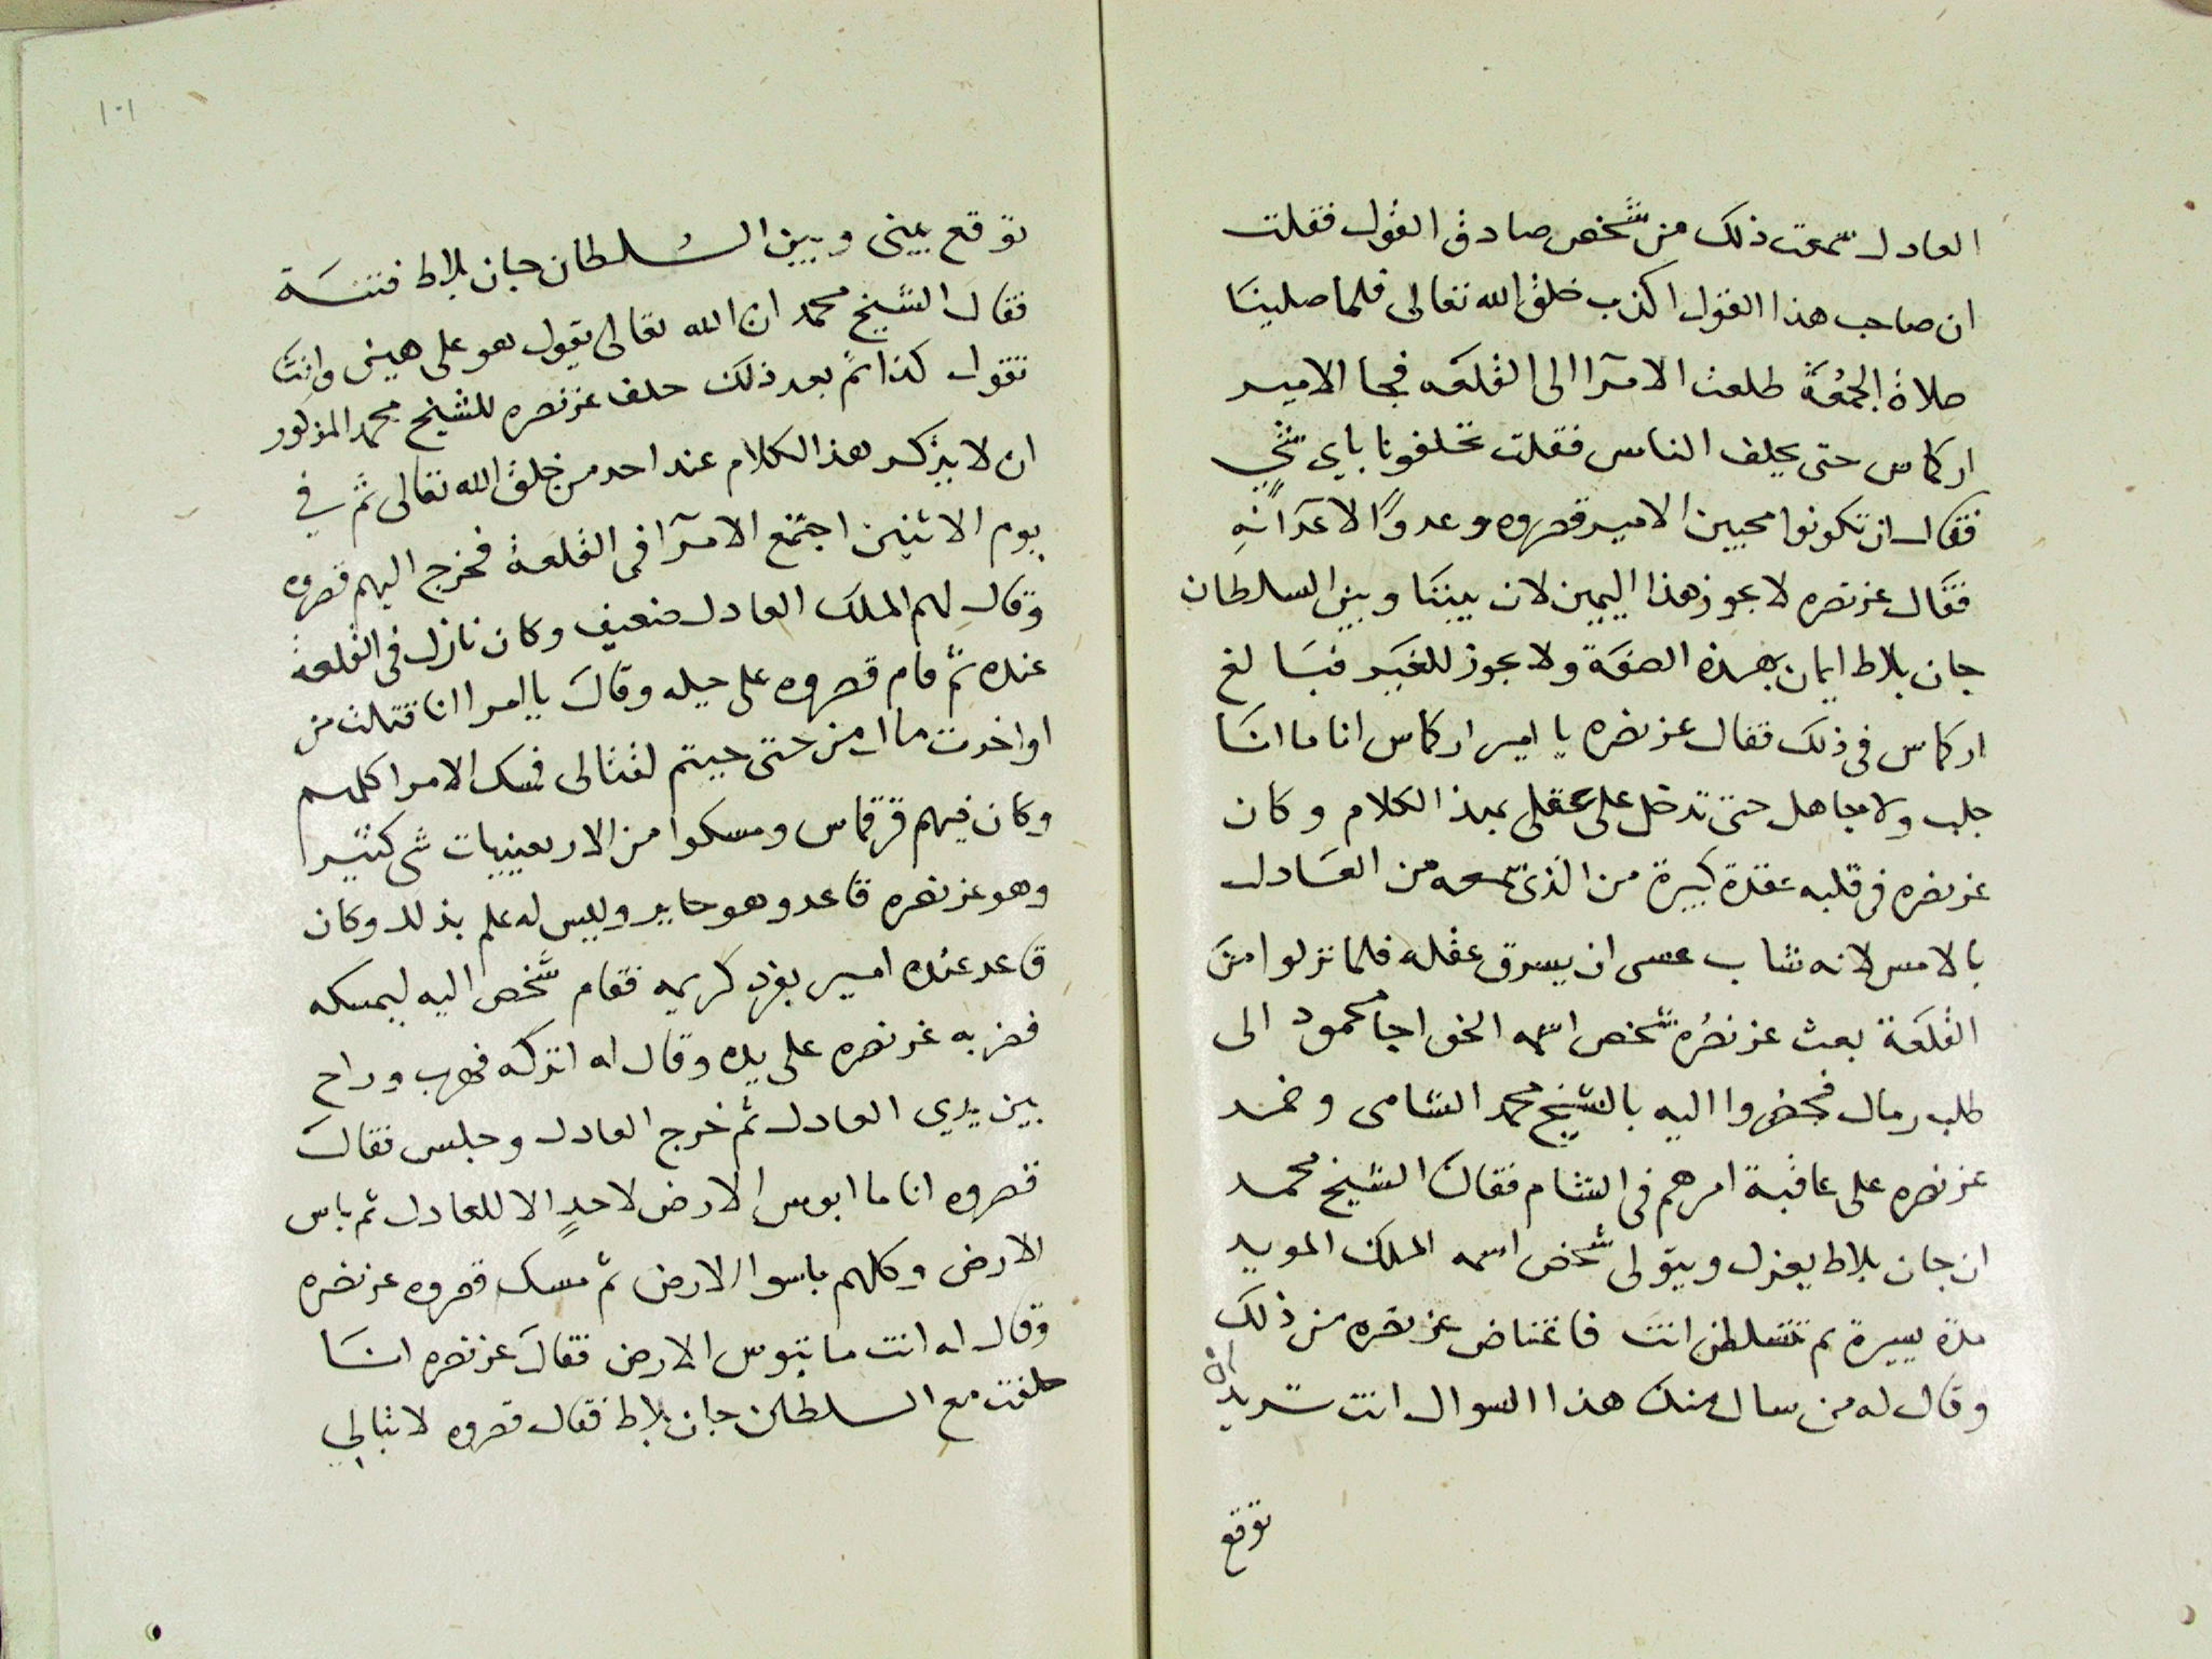 العادل سمعت ذلك من شخص صادق القول فقلت
ان صاحب هذا القول اكذب خلق الله تعالى فلما صلينا
صلاة الجمعة طلعت الامرا الى القلعه فجا الامير
اركماس حتى يحلف الناس فقلت تحلفونا باي شي
فقال ان تكونوا محبين الامير قصروه وعدوًا لاعدائه
فقال عز نصره لا يجوز هذا اليمين لان بيننا وبين السلطان
جان بلاط ايمان بهذه الصفة ولا يجوز للغير فبالغ
اركماس في ذلك فقال عز نصره يا امير اركماس انا ما انا
جلب ولا جاهل حتى تدخل على عقلى بهذا الكلام وكان
عز نصره في قلبه عقدة كبيرة من الذى سمعه من العادل
بالامس لانه شاب عسى ان يسرق عقله فلما نزلوا من
القلعة بعث عز نصره شخص اسمه الخواجا محمود الى
طلب رمال فحضروا اليه بالشيخ محمد الشامى وضمد
عز نصره على عاقبة امرهم في الشام فقال الشيخ محمد
ان جان بلاط يعزل ويتولى شخص اسمه الملك المويد
مدة يسيرة ثم تتسلطن انت فاغتاض عز نصره من ذلك
وقال له من سال منك هذا السوال انت تريد ان
توقع
١٠١
توقع بينى وبين السلطان جان بلاط فتنة
فقال الشيخ محمد ان الله تعالى يقول هو على هين وانت
تقول كذا ثم بعد ذلك حلف عز نصره للشيخ محمد المذكور
ان لا يذكر هذا الكلام عند احد من خلق الله تعالى ثم في
يوم الاثنين اجتمع الامرا في القلعة فخرج اليهم قصروه
وقال لهم الملك العادل ضعيف وكان نازل في القلعة
عنده ثم قام قصروه على حيله وقال يا امرا انا قتلت من
اواخرت ما ا من حتى جيتم لقتالى فمسك الامرا كلهم
وكان فيهم قرقماس ومسكوا من الاربعينيات شى كثيرا
وهو عز نصره قاعد وهو حاير وليس له علم بذلك وكان
قاعد عنده امير بفرد كريمه فقام شخص اليه ليمسكه
فضربه عز نصره على يده وقال له اتركه فهرب وراح
بين يدي العادل ثم خرج العادل وجلس فقال
قصروه انا ما ابوس الارض لاحدٍ الا للعادل ثم باس
الارض وكلهم باسوا الارض ثم مسك قصروه عز نصره
وقال له انت ما تبوس الارض فقال عز نصره انا
حلفت مع السلطان جان بلاط فقال قصروه لا تبالي